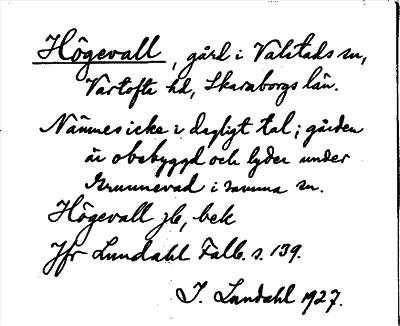 Högevall, gård i Valstads sn,
Vartofta hd, Skaraborgs län.
Nämnes icke i dagligt tal; gården
är obebyggd och lyder under
Grunnevad i samma sn.
Högevall jb, bek
Jfr Lundahl Falb. s. 139.
I. Lundahl 1927.